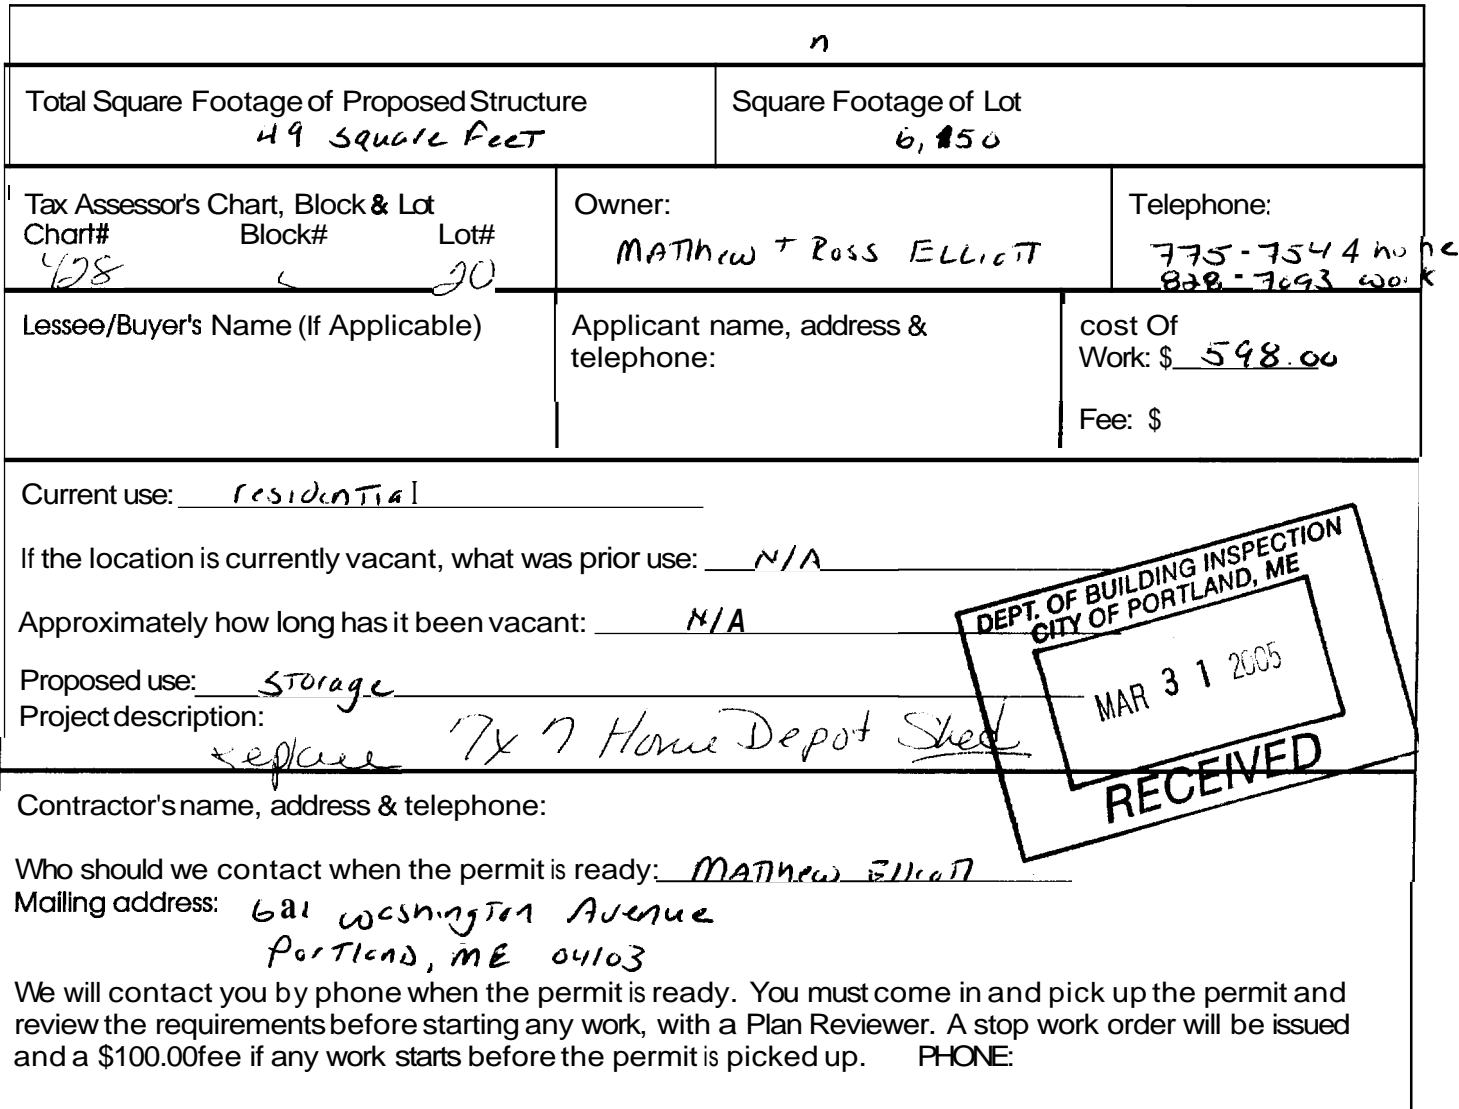 n
Total Square Footage of Proposed Structure
49 square feet
Square Footage of Lot
6,150
Tax Assessor's Chart, Block & Lot
Chart# Block# Lot#
428 20
Owner:
Matthew + Ross Elliott
Telephone:
775-7544 home
828-7093 work
Lessee/Buyer's Name (If Applicable)
Applicant name, address &
telephone:
cost Of
Work: $ 598.00
Fee: $
Current use: residential
If the location is currently vacant, what was prior use: N/A
Approximately how long has it been vacant: N/A
Proposed use: storage
Project description:
replace 7x7 Home Depot Shed
DEPT. OF BUILDING INSPECTION
CITY OF PORTLAND, ME
MAR 31 2005
RECEIVED
Contractor's name, address & telephone:
Who should we contact when the permit is ready: Matthew Elliott
Mailing address: 621 Washington Avenue
Portland, ME 04103
We will contact you by phone when the permit is ready. You must come in and pick up the permit and
review the requirements before starting any work, with a Plan Reviewer. A stop work order will be issued
and a $100.00 fee if any work starts before the permit is picked up. PHONE: